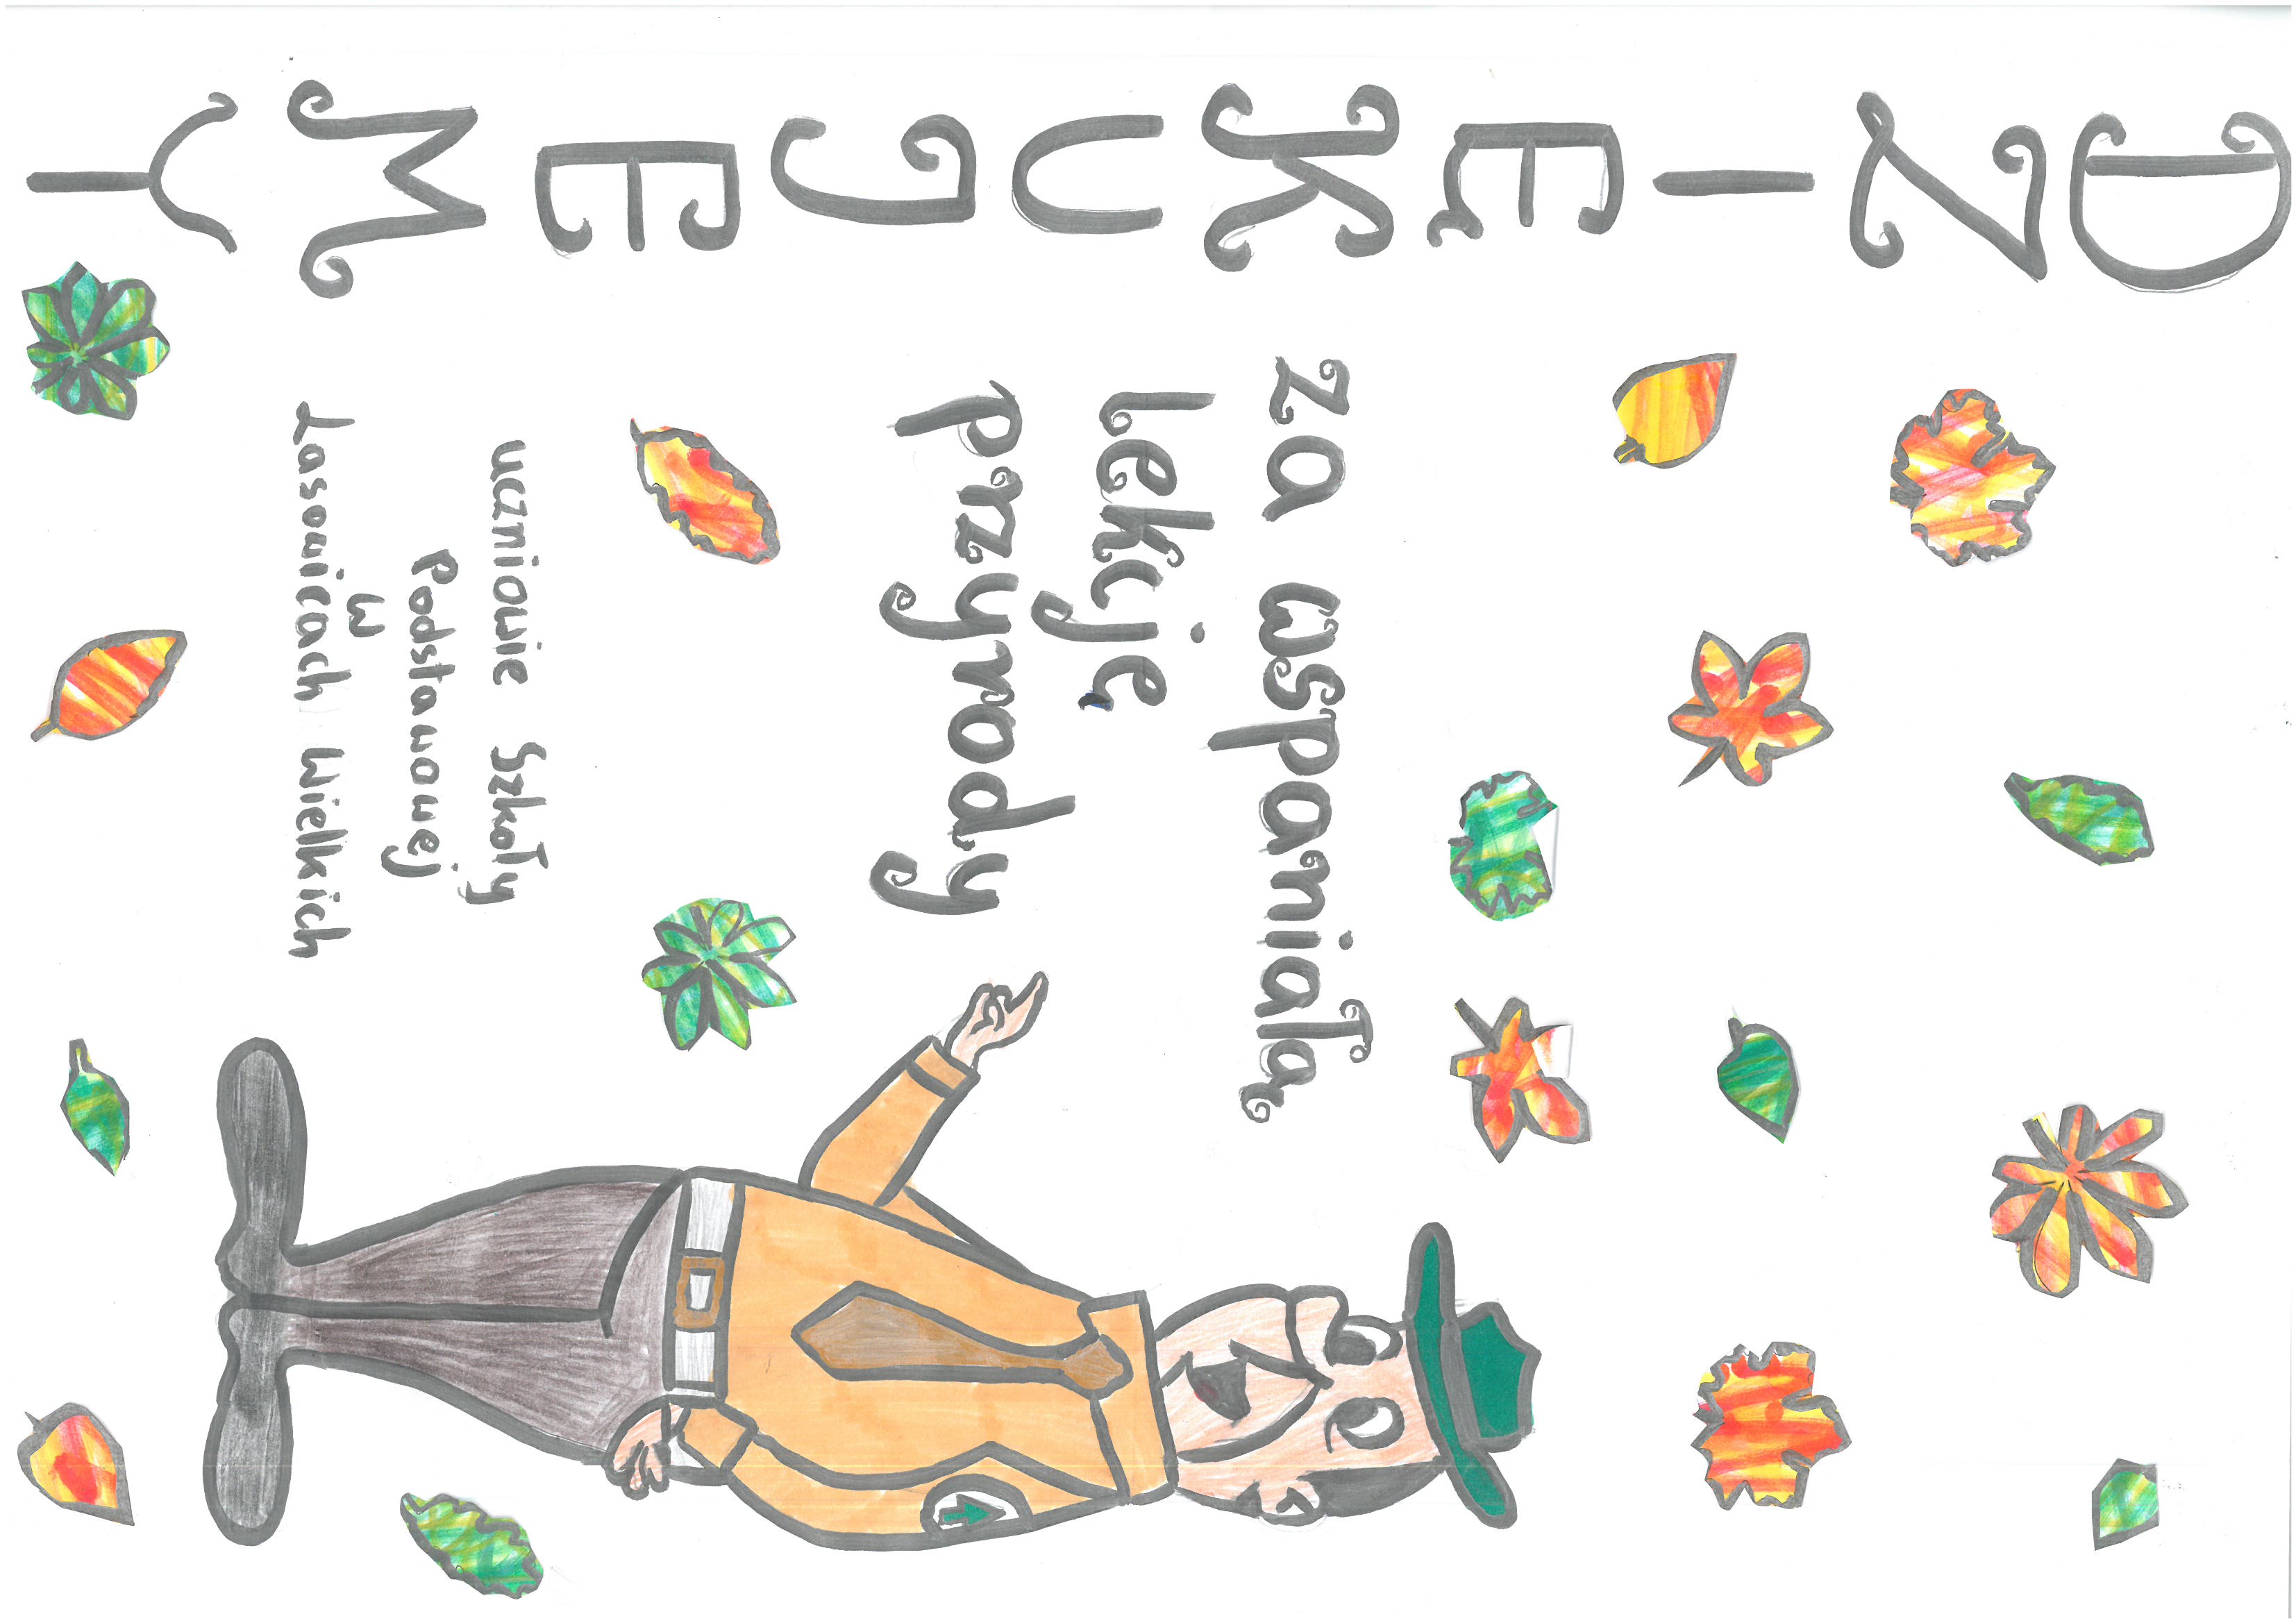 DZIĘKUJEMY
za wspaniałą
lekcję
przyrody
uczniowie Szkoły
Podstawowej
w
Lasowicach Wielkich